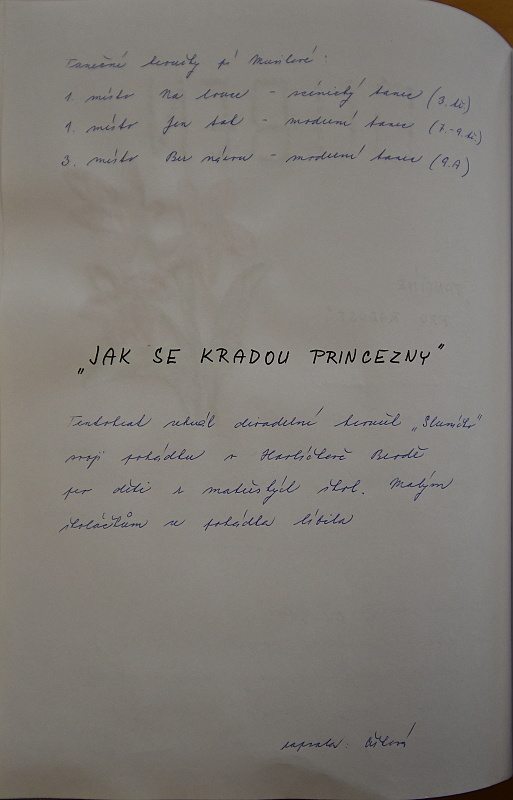 Taneční kroužky pí Musilové:
1. místo Na louce - scénický tanec (3. tř.)
1. místo Jen tak - moderní tanec (7.-9. tř.)
3. místo Bez názvu - moderní tanec (9.A)
„JAK SE KRADOU PRINCEZNY"
Tentokrát sehrál divadelní kroužek „Sluníčko"
svoji pohádku v Havlíčkově Brodě
pro děti z mateřských škol. Malým
školáčkům se pohádka líbila
zapsala: